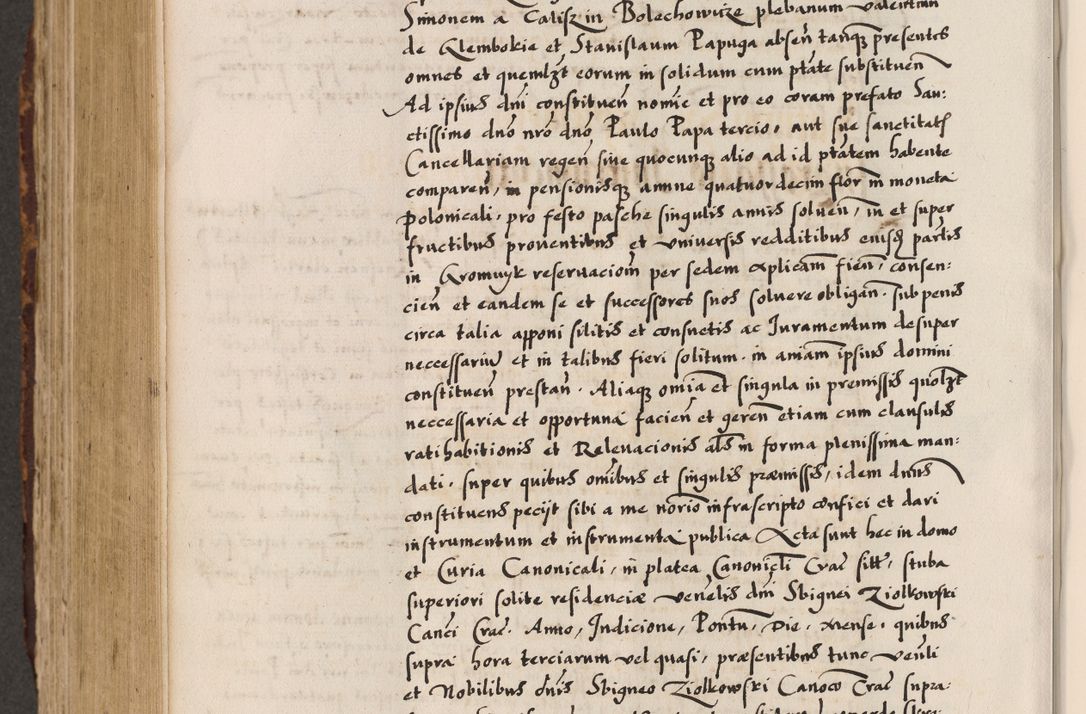 Simonem a Calisz in Bolechowicze plebanum Valentinum
de Klembokie et Stanislaum Papuga absen̄ tanq̄ presentes
omnes et quemlꝫt eorum in solidum cum ptāte substituen̄
Ad ipsius dn̄i constituen̄ nomīe et pro eo coram prefato San:
ctissimo dn̄o nr̄o dn̄o Paulo Papa tercio, aut sue sanctitatꝭ
Cancellariam regen̄ siue quocunqꝫ alio ad id ptātem habente
comparen̄, in pensionisqꝫ annue quatuordecim flor̄ in moneta
Polonicali, pro festo pasche singulis annis soluen̄, in et super
fructibus prouentibus et vniuersis redditibus eiusd̄ parl̄is
in Gromnyk reseruacioīn per sedem Ap̄licam̄ fien̄, consen:
cien̄ et eandem se et successores suos soluere obligan̄. sub penis
circa talia apponi silitis et consuetis ac Iuramentum desuper
neccessariū et in talibus fieri solitum. in aniām ipsius domini
constituen̄ prestan̄. Aliaqꝫ om̄ia et singula in premissis quolꝫt
neccessaria et opportuna facien̄ et geren̄ etiam cum clausulis
ratihabitionis et Releuacionis al̄s in forma plenissima man:
dati, super quibus om̄ibus et singulis præmissis, idem dn̄us
constituens pecijt sibi a me nōrio infrascripto confici et dari
instrumentum et instrumenta publica Acta sunt hec in domo
et Curia Canonicali, in platea Canonicl̄i Crac̄ sitt̄, stuba
superiori solite residenciæ venēlis dn̄i Sbignei Ziolkowski
Can̄ci Crac̄. Anno, Indicione, Pontn̄, Die, Mense, quibus
supra hora terciarum vel quasi, præsentibus tunc ven̄li
et Nobilibus dn̄is Sbigneo Ziolkowski Canoco Crac̄ supra: